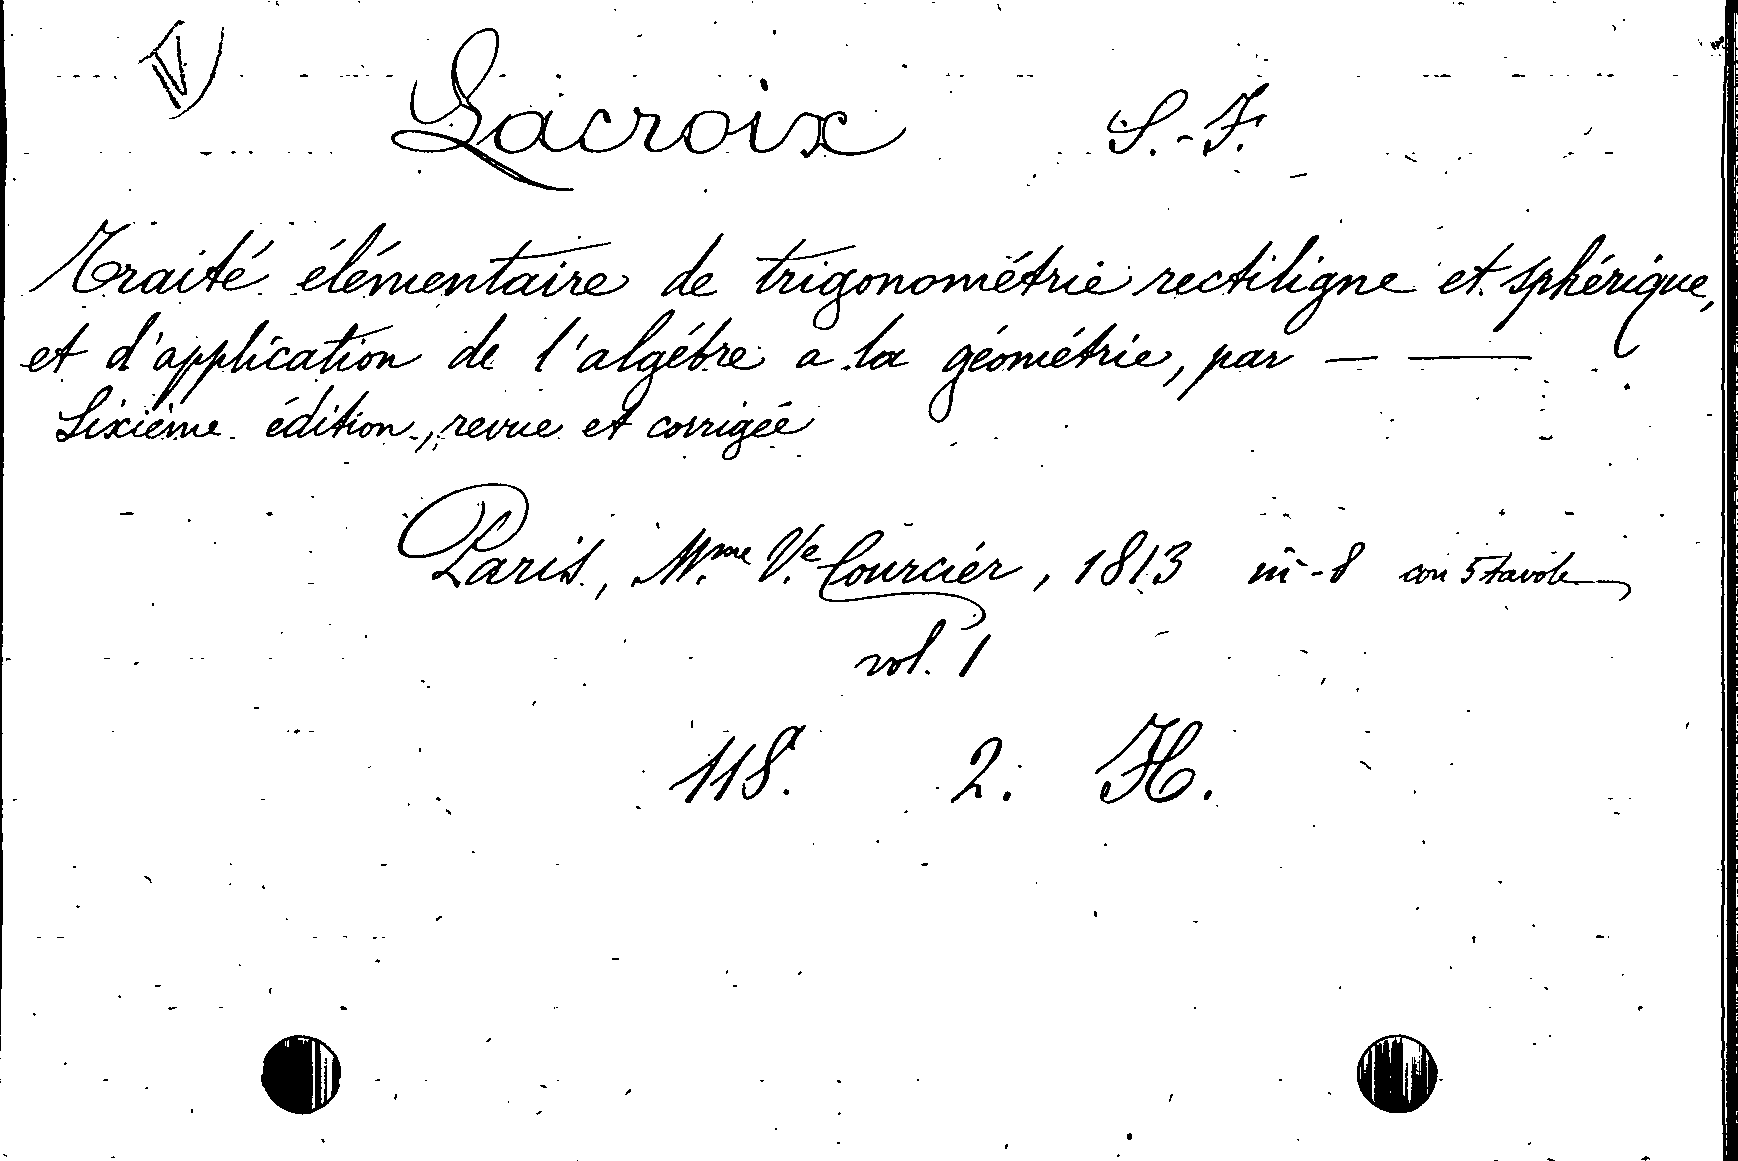 IV)
Lacroix S.-F.
Traité élémentaire de trigonométrie rectiligne et sphérique,
et d'application de l'algébre a la géométrie, par — —
Sixième édition, revue et corrigée
Paris, M.me V.e Courcier, 1813 in-8 con 5 tavole
vol. 1
118.a 2. H.